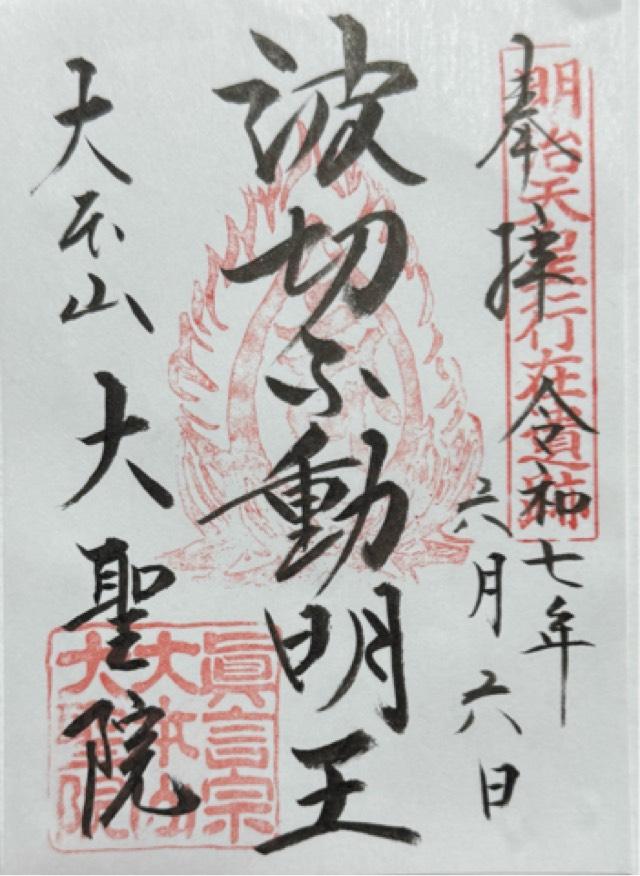 明治天皇行在遺跡
奉拝 令和七年
六月六日
波切不動明王
大本山 大聖院
眞言宗
大本山
大聖院